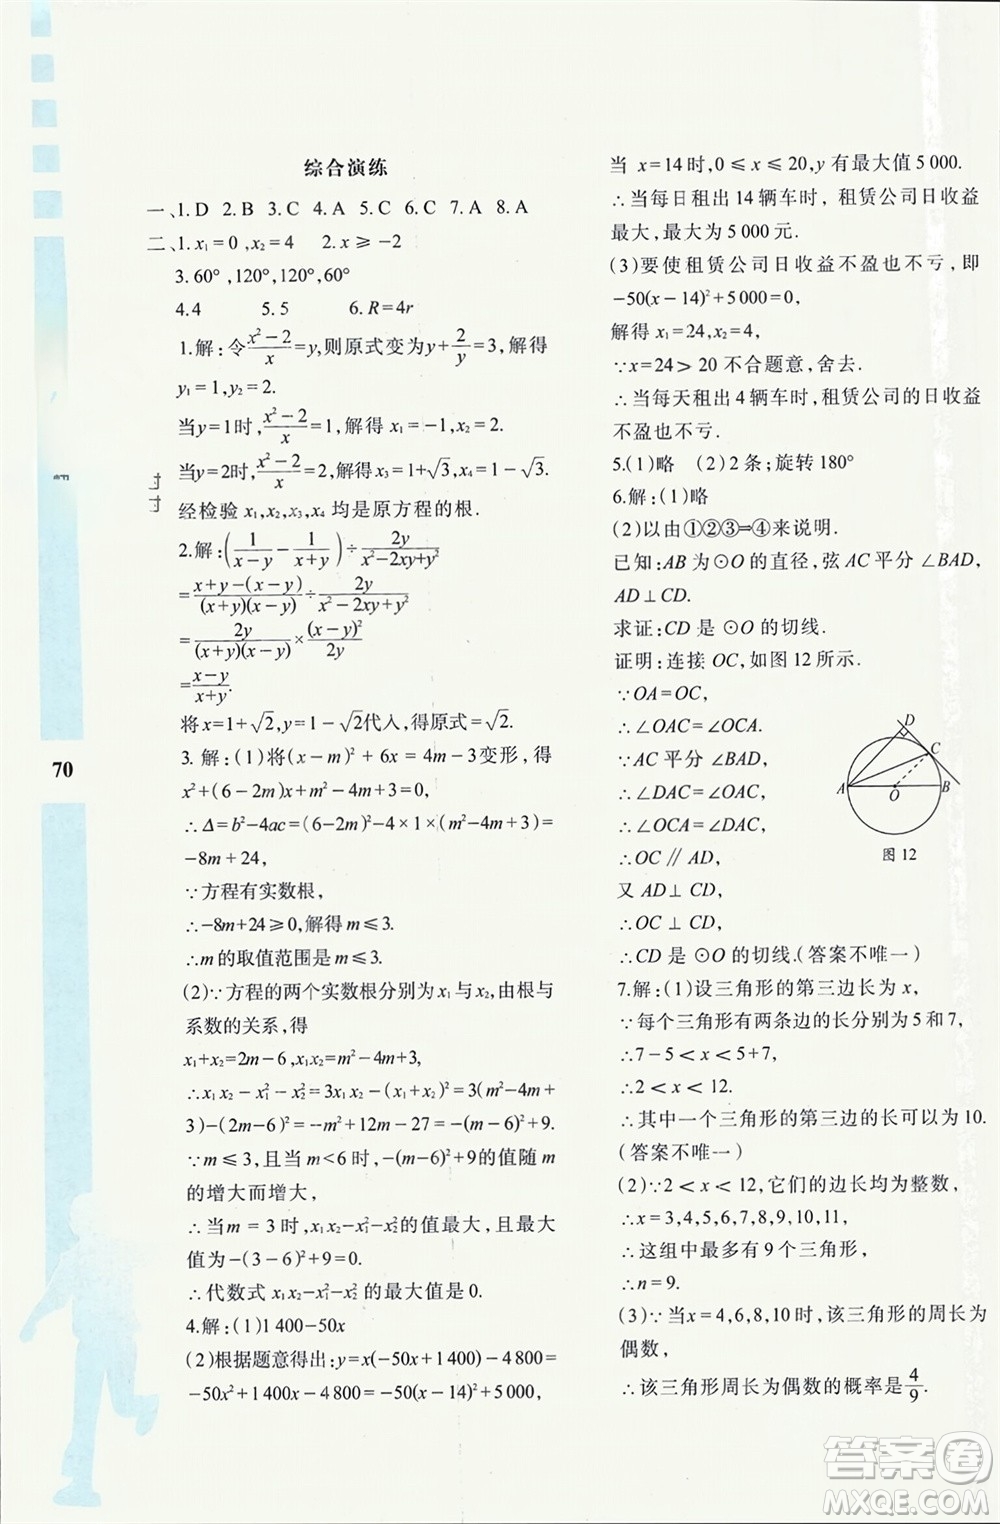 综合演练
一、1. D 2. B 3. C 4. A 5. C 6. C 7. A 8. A
二、1. x₁=0, x₂=4 2. x⩾-2
3. 60°, 120°, 120°, 60°
4. 4 5. 5 6. R=4r
1.解:令(x²-2)/x=y,则原式变为y+2/y=3,解得
y₁=1, y₂=2.
当y=1时,(x²-2)/x=1,解得 x₁=-1, x₂=2.
当y=2时,(x²-2)/x=2,解得 x₃=1+√3, x₄=1-√3.
经检验 x₁,x₂,x₃,x₄ 均是原方程的根.
2.解:(1/(x-y)-1/(x+y))÷2y/(x²-2xy+y²)
=(x+y-(x-y))/((x+y)(x-y))÷2y/(x²-2xy+y²)
=2y/((x+y)(x-y))×(x-y)²/2y
=(x-y)/(x+y).
将x=1+√2,y=1-√2代入,得原式=√2.
3.解:(1)将(x-m)²+6x=4m-3变形,得
x²+(6-2m)x+m²-4m+3=0,
∴Δ=b²-4ac=(6-2m)²-4×1×(m²-4m+3)=
-8m+24,
∵方程有实数根,
∴-8m+24⩾0,解得m⩽3.
∴m的取值范围是m⩽3.
(2)∵方程的两个实数根分别为x₁与x₂,由根与
系数的关系,得
x₁+x₂=2m-6,x₁x₂=m²-4m+3,
∴x₁x₂-x₁²-x₂²=3x₁x₂-(x₁+x₂)²=3(m²-4m+
3)-(2m-6)²=-m²+12m-27=-(m-6)²+9.
∵m⩽3,且当m<6时,-(m-6)²+9的值随m
的增大而增大,
∴当m=3时,x₁x₂-x₁²-x₂²的值最大,且最大
值为-(3-6)²+9=0.
∴代数式 x₁x₂-x₁²-x₂²的最大值是0.
4.解:(1)1 400-50x
(2)根据题意得出:y=x(-50x+1 400)-4 800=
-50x²+1 400x-4 800=-50(x-14)²+5 000,
当 x=14时,0⩽x⩽20,y有最大值5 000.
∴当每日租出14辆车时,租赁公司日收益
最大,最大为5 000元.
(3)要使租赁公司日收益不盈也不亏,即
-50(x-14)²+5 000=0,
解得 x₁=24,x₂=4,
∵x=24>20不合题意,舍去.
∴当每天租出4辆车时,租赁公司的日收益
不盈也不亏.
5.(1)略 (2)2条;旋转180°
6.解:(1)略
(2)以由①②③⇒④来说明.
已知:AB为⊙O的直径,弦AC平分∠BAD,
AD⊥CD.
求证:CD是⊙O的切线.
证明:连接OC,如图12所示.
∵OA=OC,
∴∠OAC=∠OCA.
∵AC平分∠BAD,
∴∠OAC=∠DAC,
∴∠OCA=∠DAC,
∴OC∥AD,
又AD⊥CD,
∴OC⊥CD,
∴CD是⊙O的切线.(答案不唯一)
D
C
A
O
B
图12
7.解:(1)设三角形的第三边长为x,
∵每个三角形有两条边的长分别为5和7,
∴7-5<x<5+7,
∴2<x<12.
∴其中一个三角形的第三边的长可以为10.
(答案不唯一)
(2)∵2<x<12,它们的边长均为整数,
∴x=3,4,5,6,7,8,9,10,11,
∴这组中最多有9个三角形,
∴n=9.
(3)∵当x=4,6,8,10时,该三角形的周长为
偶数,
∴该三角形周长为偶数的概率是4/9.
70
答案卷
MXQE.COM